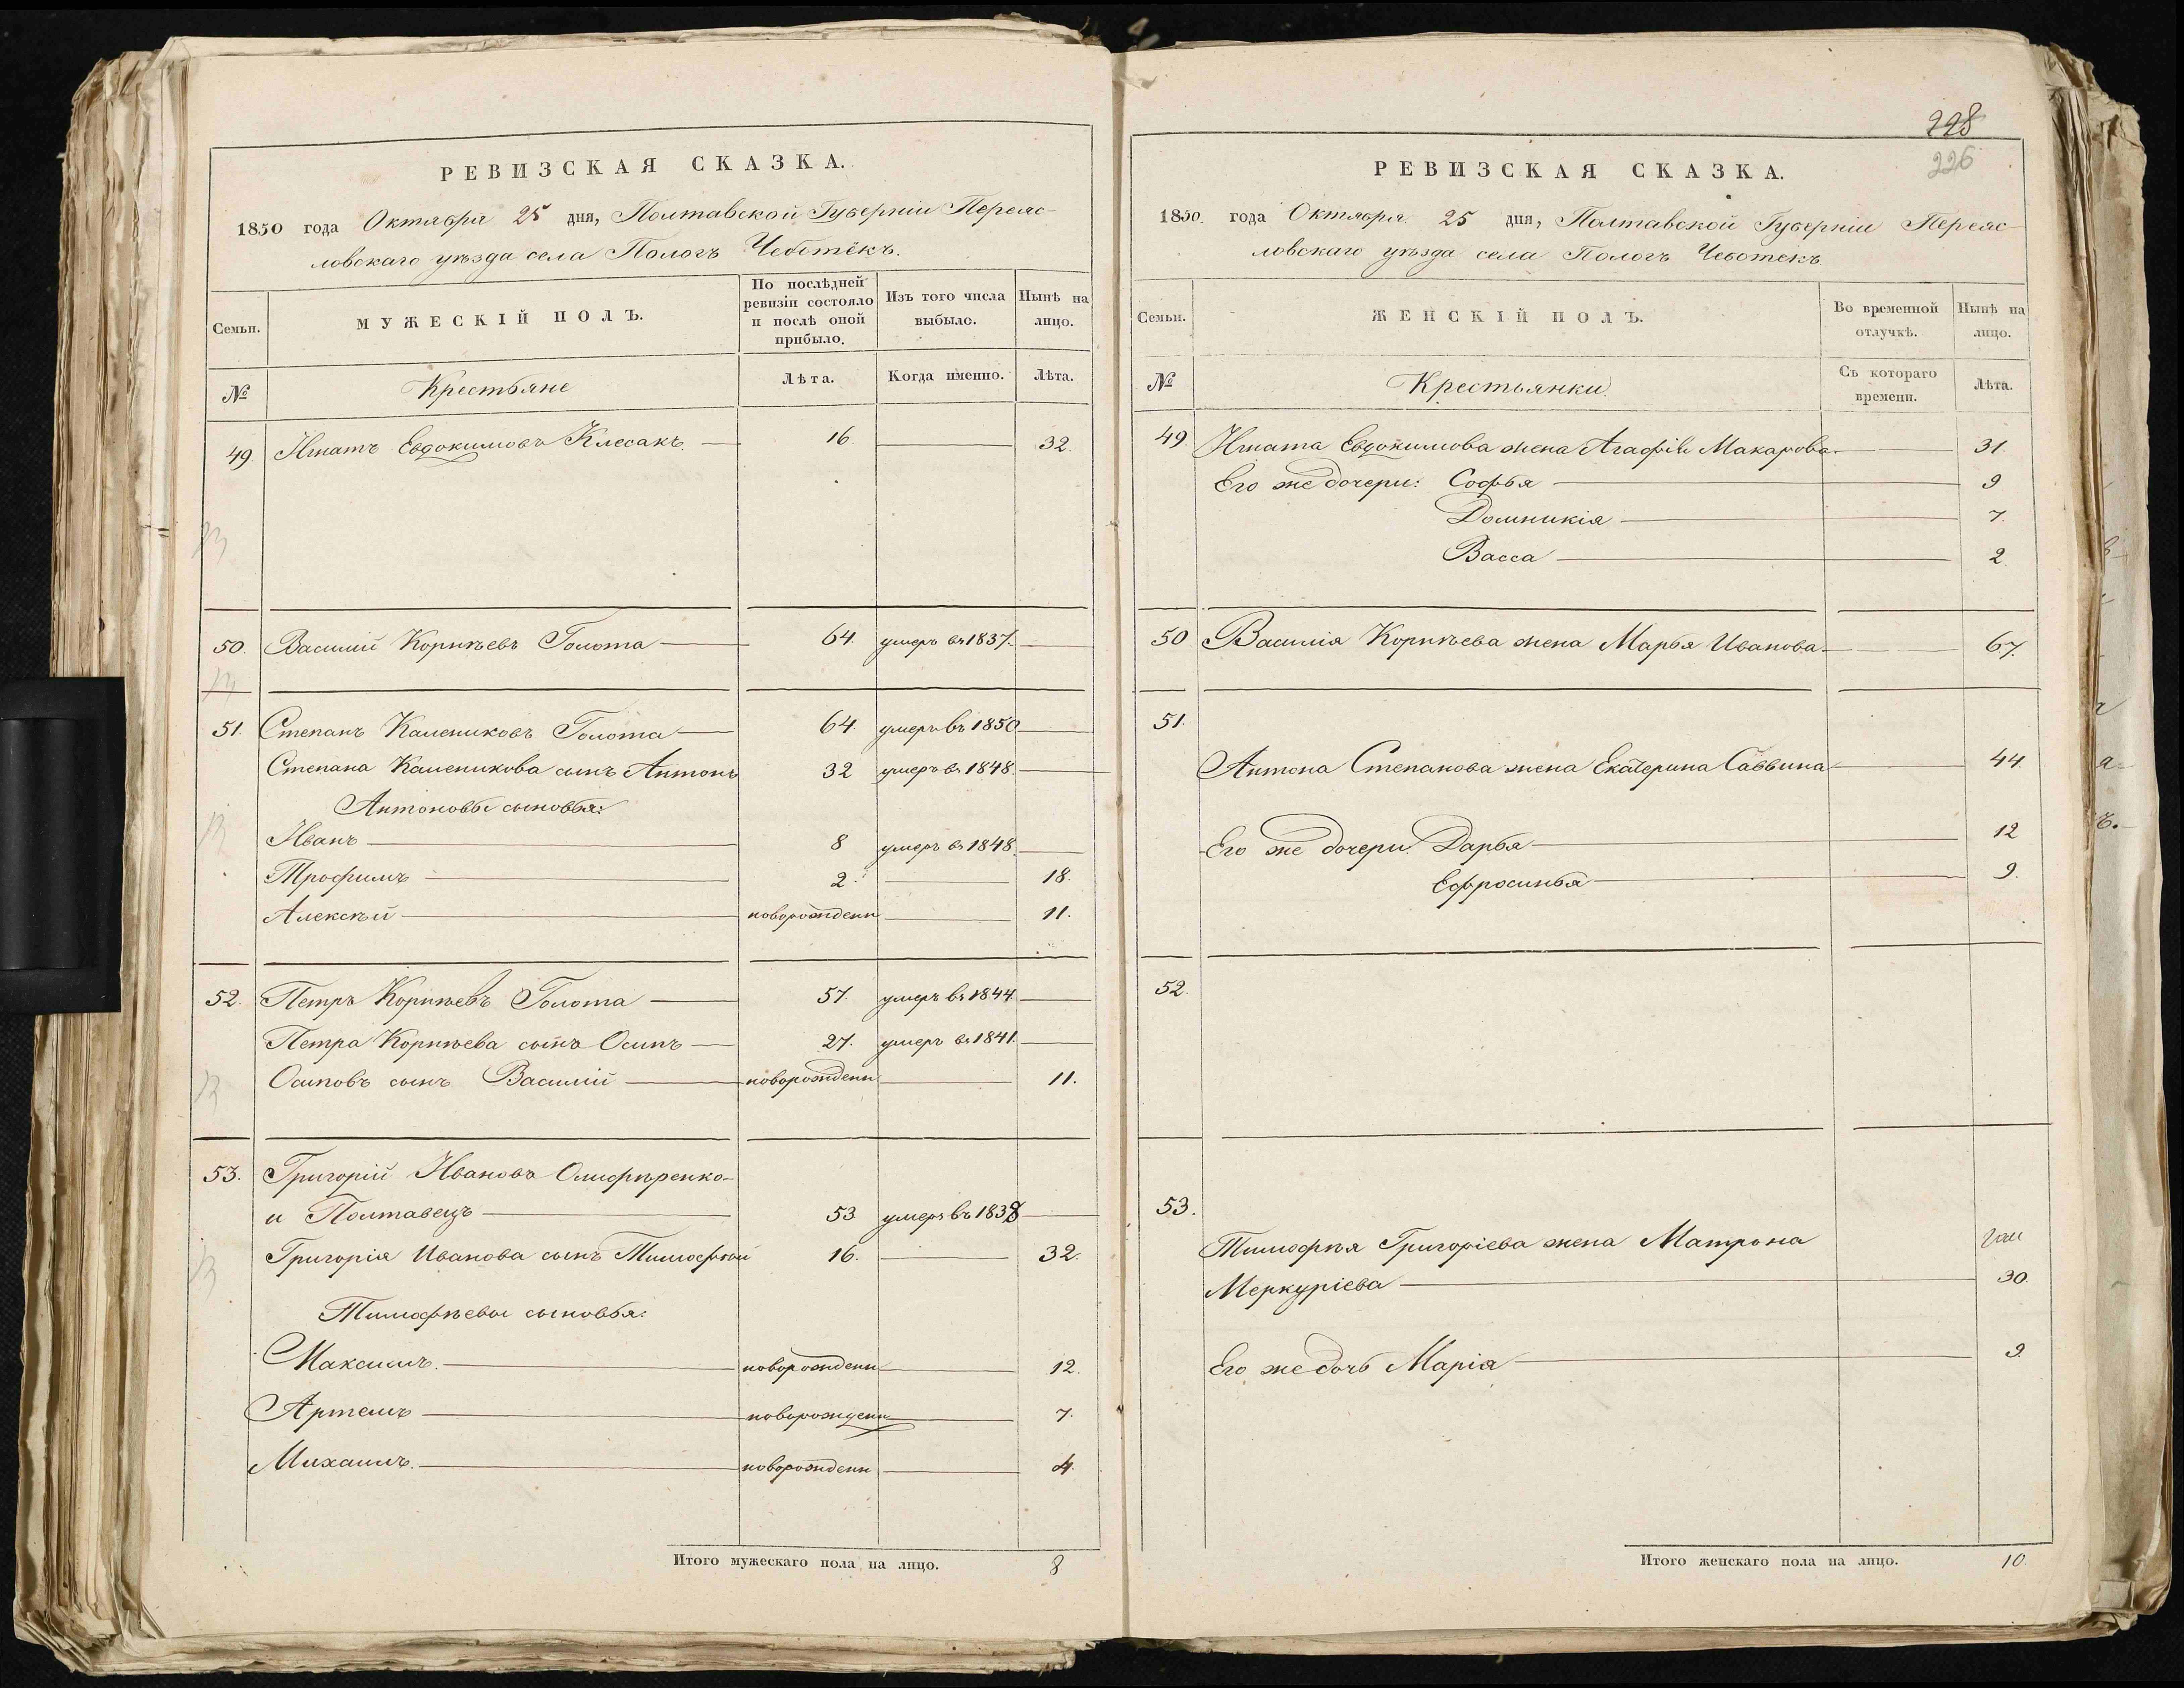 РЕВИЗСКАЯ СКАЗКА.
1850 года Октября 25 дня, Полтавской Губерніи Переяс-
ловскаго уѣзда села Пологъ Чеботёкъ.
Семьи.
МУЖЕСКІЙ ПОЛЪ.
По послѣдней ревизіи состояло и послѣ оной прибыло.
Изъ того числа выбыло.
Нынѣ на лицо.
№
Крестьяне
Лѣта.
Когда именно.
Лѣта.
49. Игнатъ Евдокимовъ Клесакъ. 16. 32.
50. Василий Корнѣевъ Голота 64. умеръ въ 1837.
51. Степанъ Калениковъ Голота 64. умеръ въ 1850
Степана Каленикова сынъ Антонъ 32 умеръ въ 1848.
Антоновы сыновья:
Иванъ 8 умеръ въ 1848.
Трофимъ 2. 18.
Алексѣй новорожденн 11.
52. Петръ Корнѣевъ Голота 57. умеръ въ 1844
Петра Корнѣева сынъ Осипъ 27. умеръ въ 1841.
Осиповъ сынъ Василій новорожденн 11.
53. Григорій Ивановъ Олифѣренко-
и Полтавецъ 53 умеръ въ 1838
Григорія Иванова сынъ Тимофѣй 16. 32.
Тимофѣевы сыновья:
Максимъ. новорожденн 12.
Артемъ новорожденн 7.
Михаилъ. новорожденн 4.
Итого мужескаго пола на лицо. 8
228
226
РЕВИЗСКАЯ СКАЗКА.
1850. года Октября 25 дня, Полтавской Губерніи Переяс-
ловскаго уѣзда села Пологъ Чеботекъ
Семьи.
ЖЕНСКІЙ ПОЛЪ.
Во временной отлучкѣ.
Нынѣ на лицо.
№
Крестьянки
Съ котораго времени.
Лѣта.
49. Игната Евдокимова жена Агафія Макарова. 31.
Его же дочери: Софья 9
Домникія 7.
Васса 2
50 Василія Корнѣева жена Марья Иванова. 67.
51.
Антона Степанова жена Екатерина Саввина 44.
Его же дочери. Дарья 12
Ефросинья 9.
52.
53.
Тимофѣя Григоріева жена Матрона
Меркуріева 30.
Его же дочь Марія 9.
Итого женскаго пола на лицо. 10.